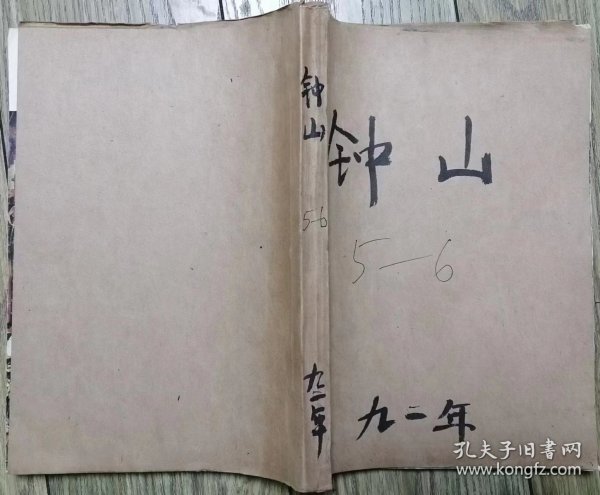 钟山
5-6
九二年
钟 山
5—6
九二年
孔夫子旧书网
www.kongfz.com